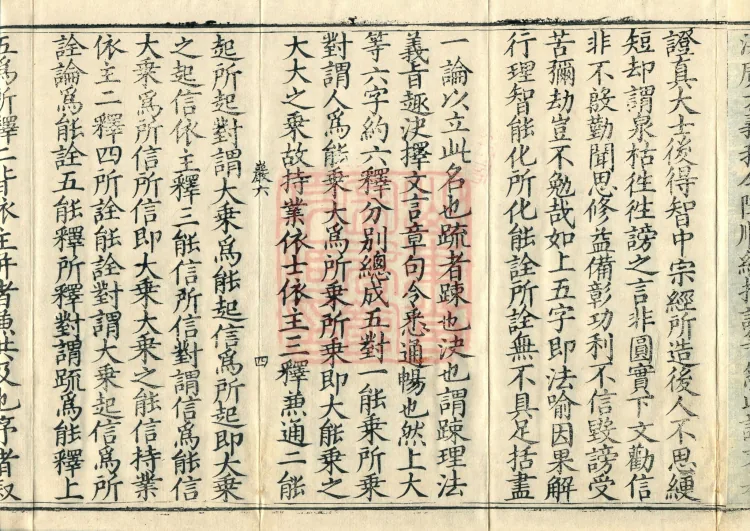 證真大士後得智中宗經所造後人不思綆
短却謂泉枯徃徃謗之言非圓實下文勸信
非不殷勤聞思修益備彰功利不信毀謗受
苦彌劫豈不勉哉如上五字即法喻因果解
行理智能化所化能詮所詮無不具足括盡
一論以立此名也疏者踈也決也謂踈理法
義旨趣決擇文言章句今悉通暢也然上大
等六字約六釋分別總成五對一能乘所乘
對謂人爲能乘大爲所乘所乘即大能乘之
大大之乘故持業依士依主三釋兼通二能
巖六 四
起所起對謂大乘爲能起信爲所起即大乘
之起信依主釋三能信所信對謂信爲能信
大乘爲所信所信即大乘大乘之能信持業
依主二釋四所詮能詮對謂大乘起信爲所
詮論爲能詮五能釋所釋對謂疏爲能釋上
五爲所釋皆依主并者兼共及也序者